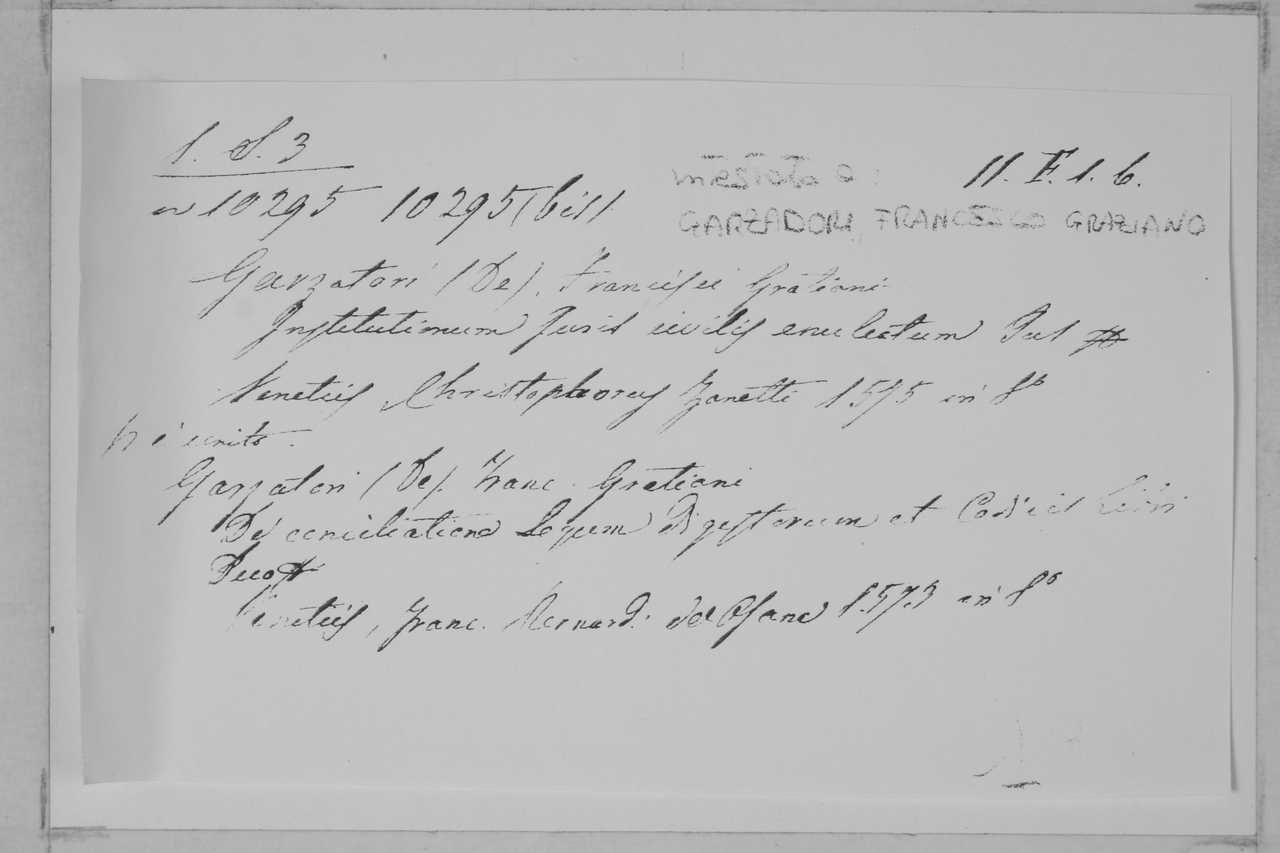 1. d. 3
intestato a :
11. F. 1. 6.
10295 10295 (bis)
GARZADORI, FRANCESCO GRAZIANO
Garzatori (De), Francisci Gratiani
Institutionum Juris civilis enucleatum
Venetiis, Christophorus Zanetti 1575 in 8º
Vi è unito.
Garzatori (De). Franc. Gratiani
De conciliatione Legum Digestorum et Codicis Libri
Duo
Venetiis, Franc. Bernard. 1573 in 8º